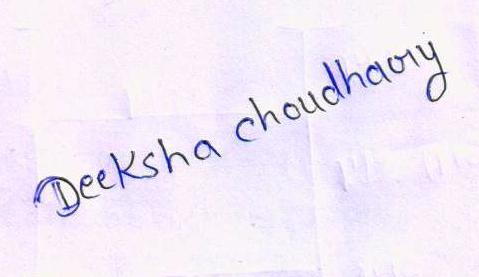 Deeksha choudhary